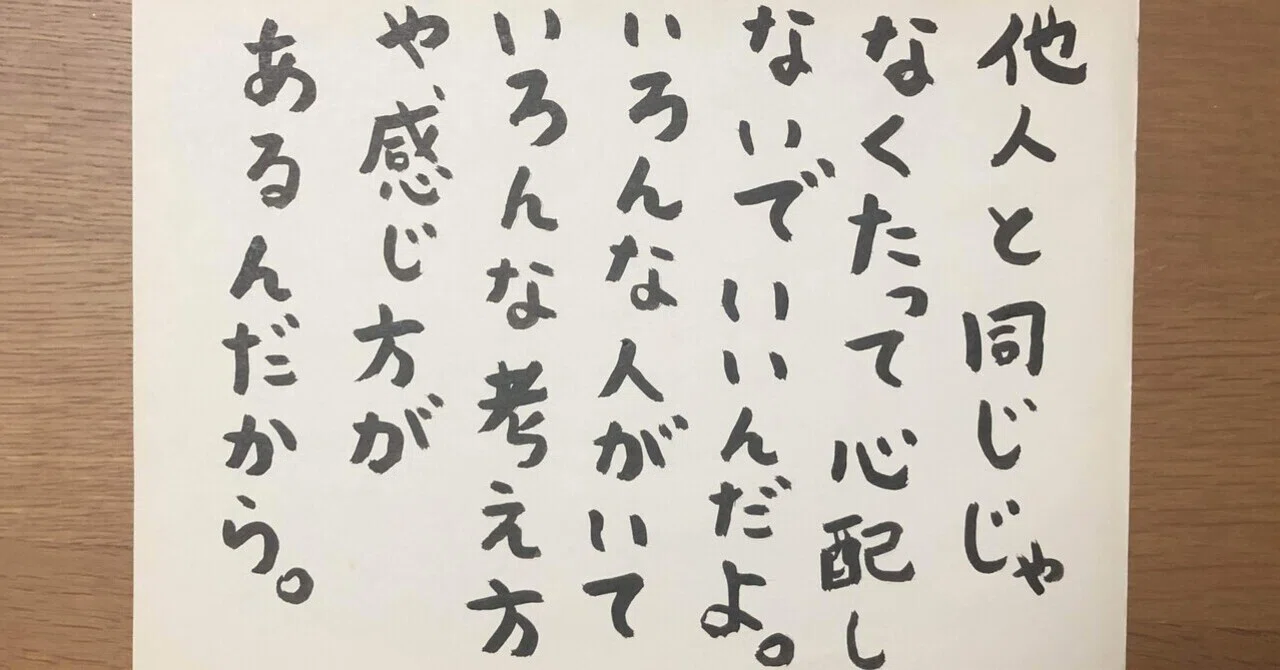 他人と同じじゃ
なくたって心配し
ないでいいんだよ。
いろんな人がいて
いろんな考え方
や、感じ方が
あるんだから。